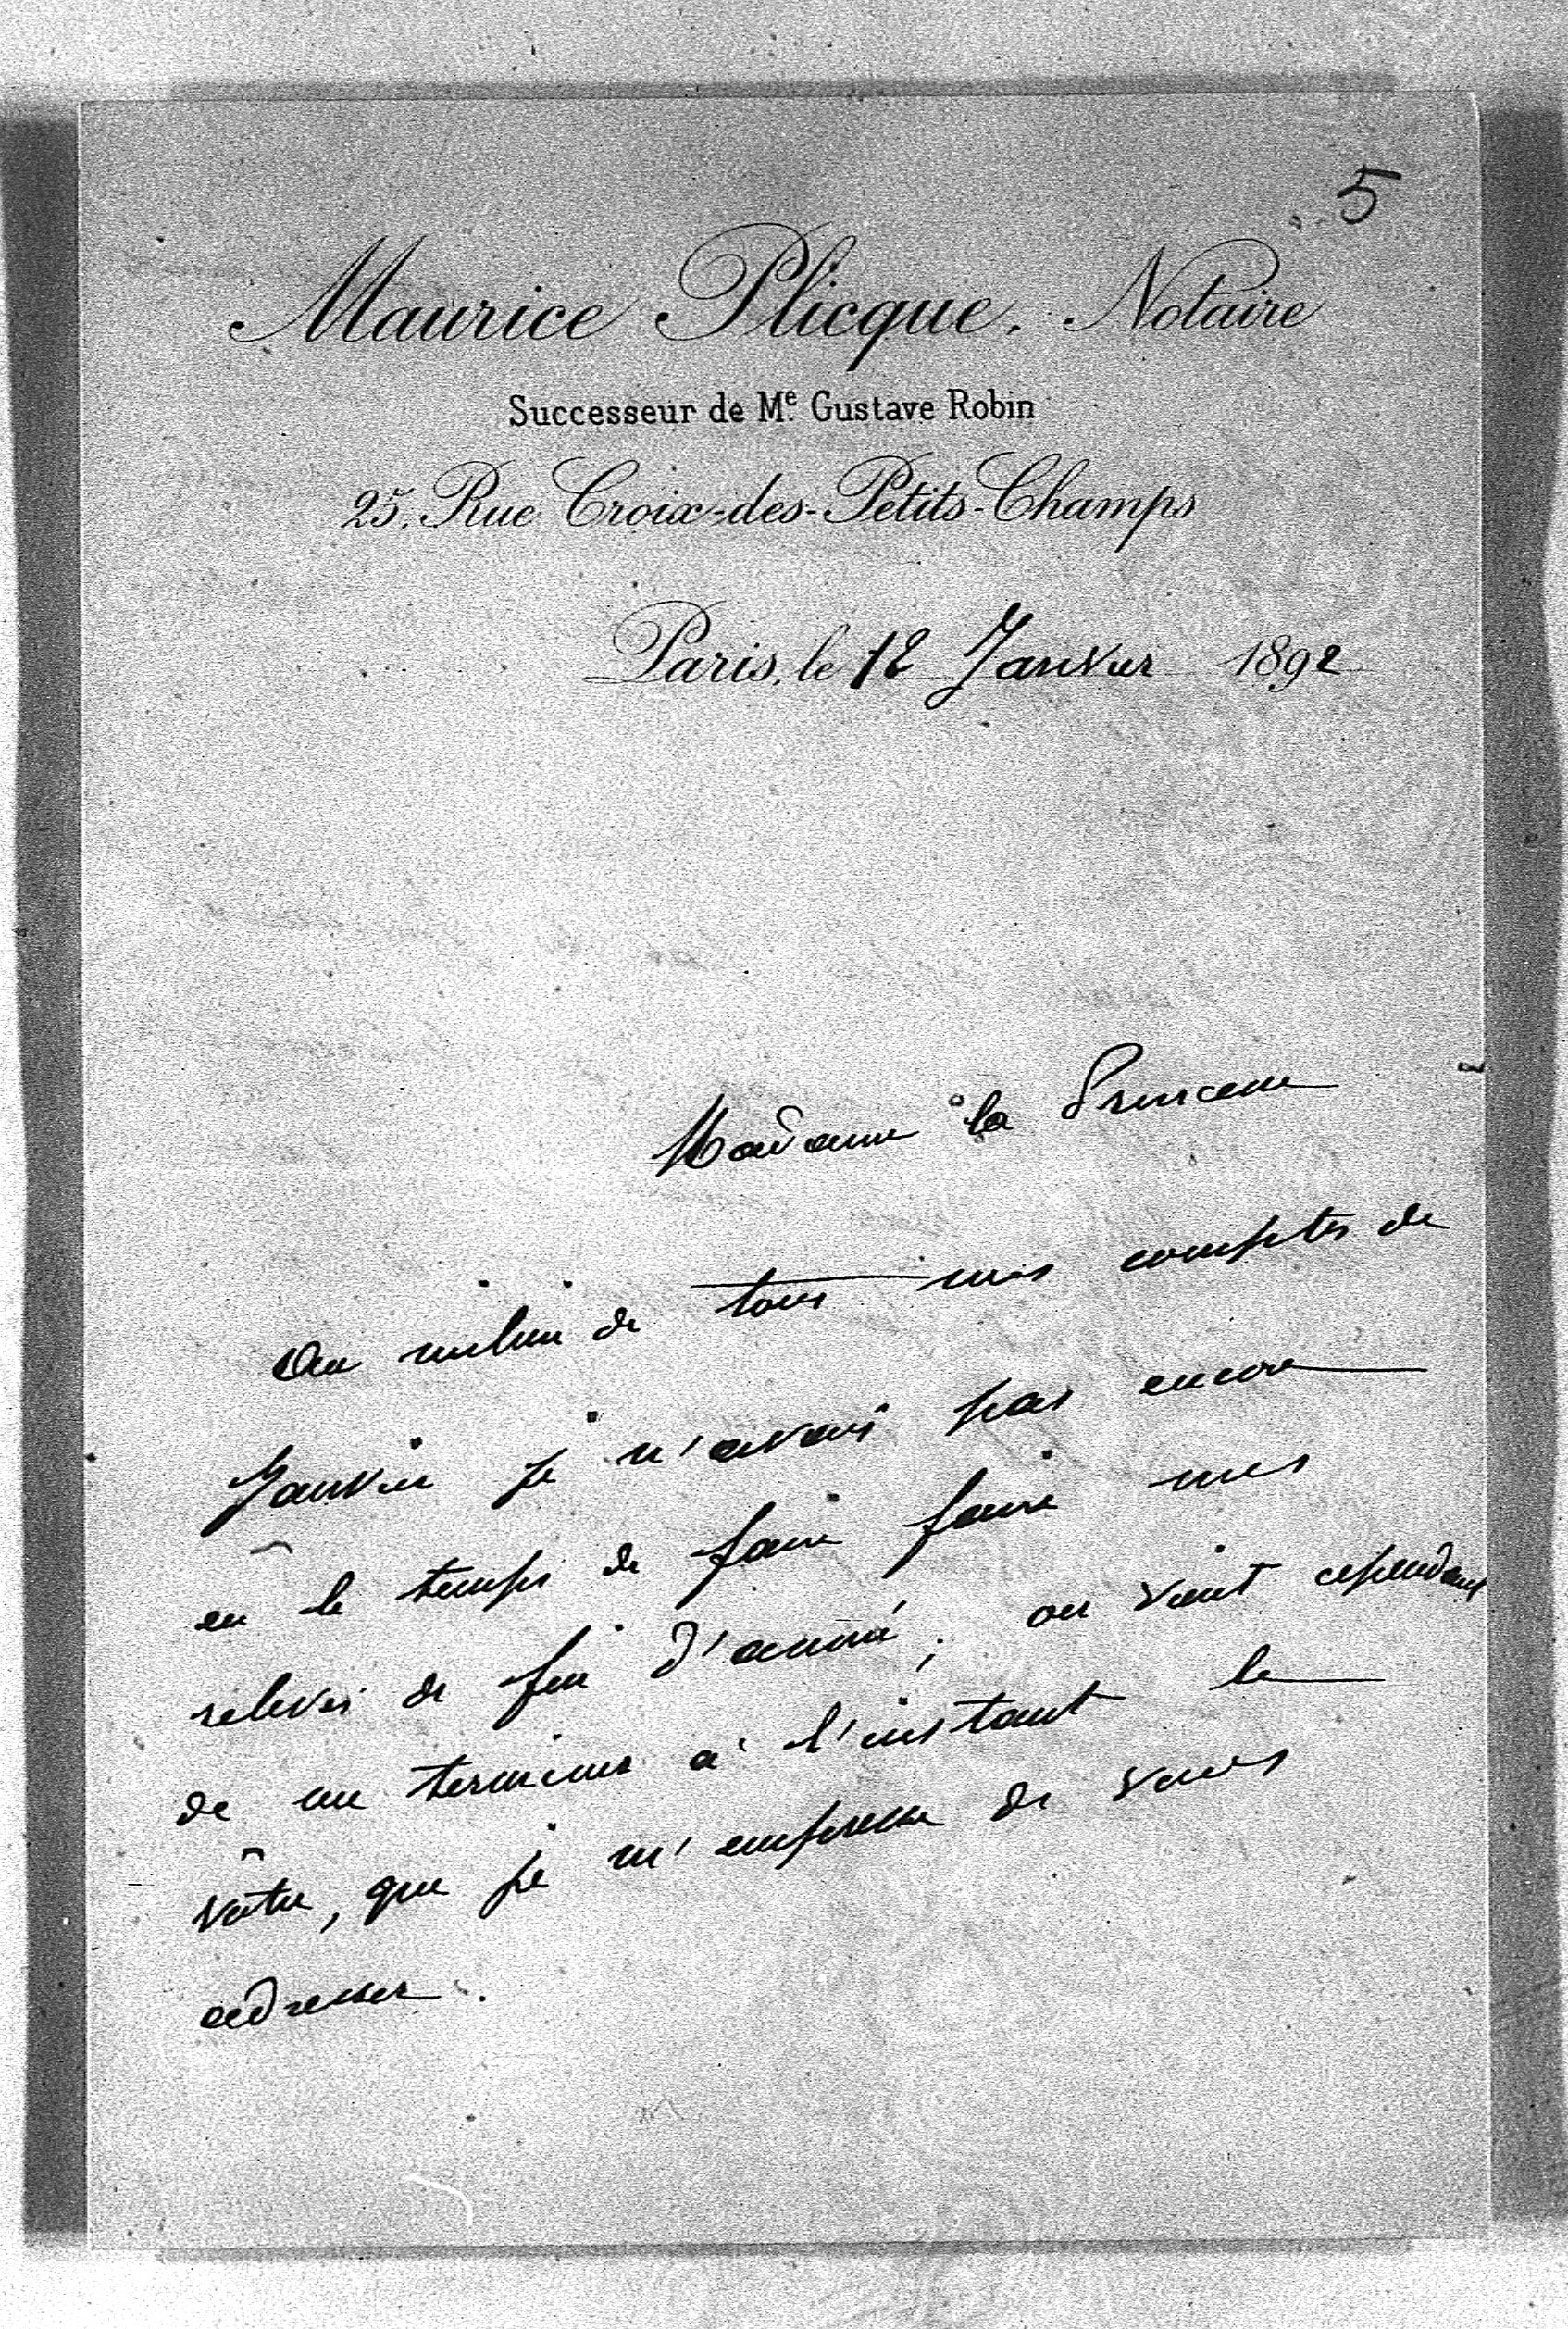 5
Maurice Plicque, Notaire
Successeur de Me. Gustave Robin
25, Rue Croix-des-Petits-Champs
Paris, le 12 Janvier 1892
Madame la Princesse
Au milieu de tous mes comptes de
Janvier je n'avais pas encore
eû le temps de faire faire mes
relevés de fin d'année; on vient cependant
de me terminer à l'instant le
vôtre, que je m'empresse de vous
adresser.